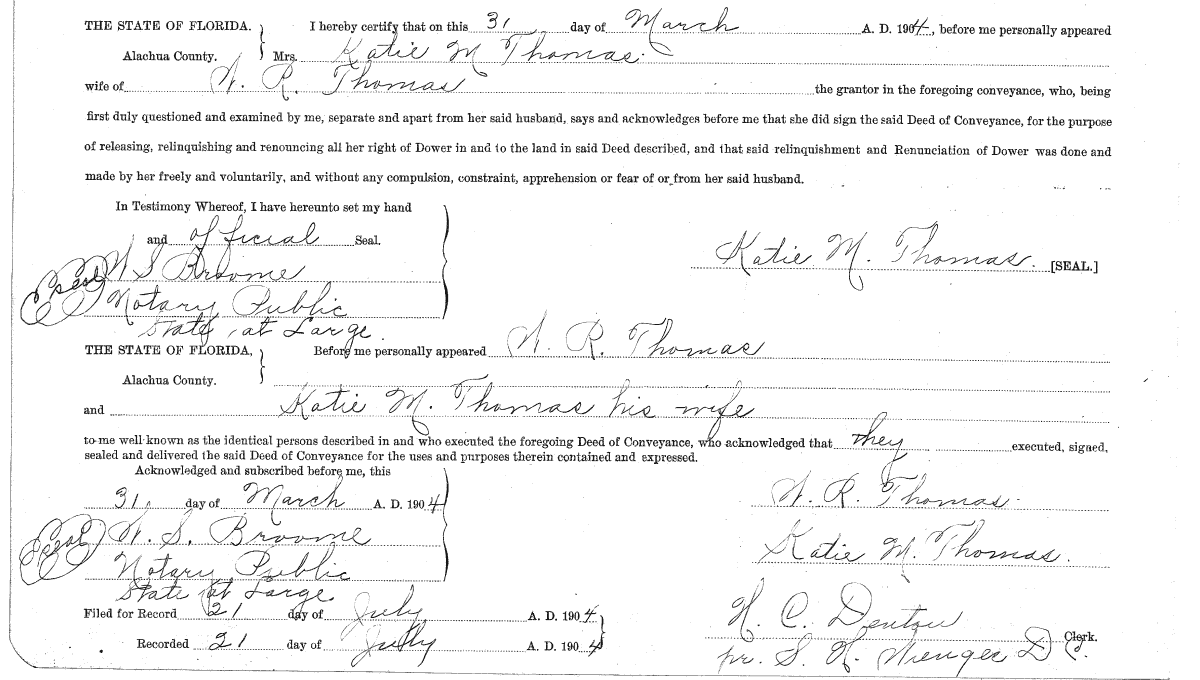 THE STATE OF FLORIDA. I hereby certify that on this 31 day of March A. D. 1904, before me personally appeared
Alachua County. Mrs. Katie M Thomas.
wife of W. R. Thomas the grantor in the foregoing conveyance, who, being
first duly questioned and examined by me, separate and apart from her said husband, says and acknowledges before me that she did sign the said Deed of Conveyance, for the purpose
of releasing, relinquishing and renouncing all her right of Dower in and to the land in said Deed described, and that said relinquishment and Renunciation of Dower was done and
made by her freely and voluntarily, and without any compulsion, constraint, apprehension or fear of or from her said husband.
In Testimony Whereof, I have hereunto set my hand
and official Seal.
Katie M. Thomas. [SEAL.]
Seal W S Broome
Notary Public
State at Large.
THE STATE OF FLORIDA, Before me personally appeared W. R. Thomas
Alachua County.
and Katie M. Thomas his wife
to me well known as the identical persons described in and who executed the foregoing Deed of Conveyance, who acknowledged that they executed, signed,
sealed and delivered the said Deed of Conveyance for the uses and purposes therein contained and expressed.
Acknowledged and subscribed before me, this
31 day of March A. D. 1904
W. R. Thomas.
Seal W. S. Broome
Katie M. Thomas.
Notary Public
State at Large.
Filed for Record 21 day of July A. D. 1904
H. C. Denton Clerk.
Recorded 21 day of July A. D. 1904
pr. S. H. D C.